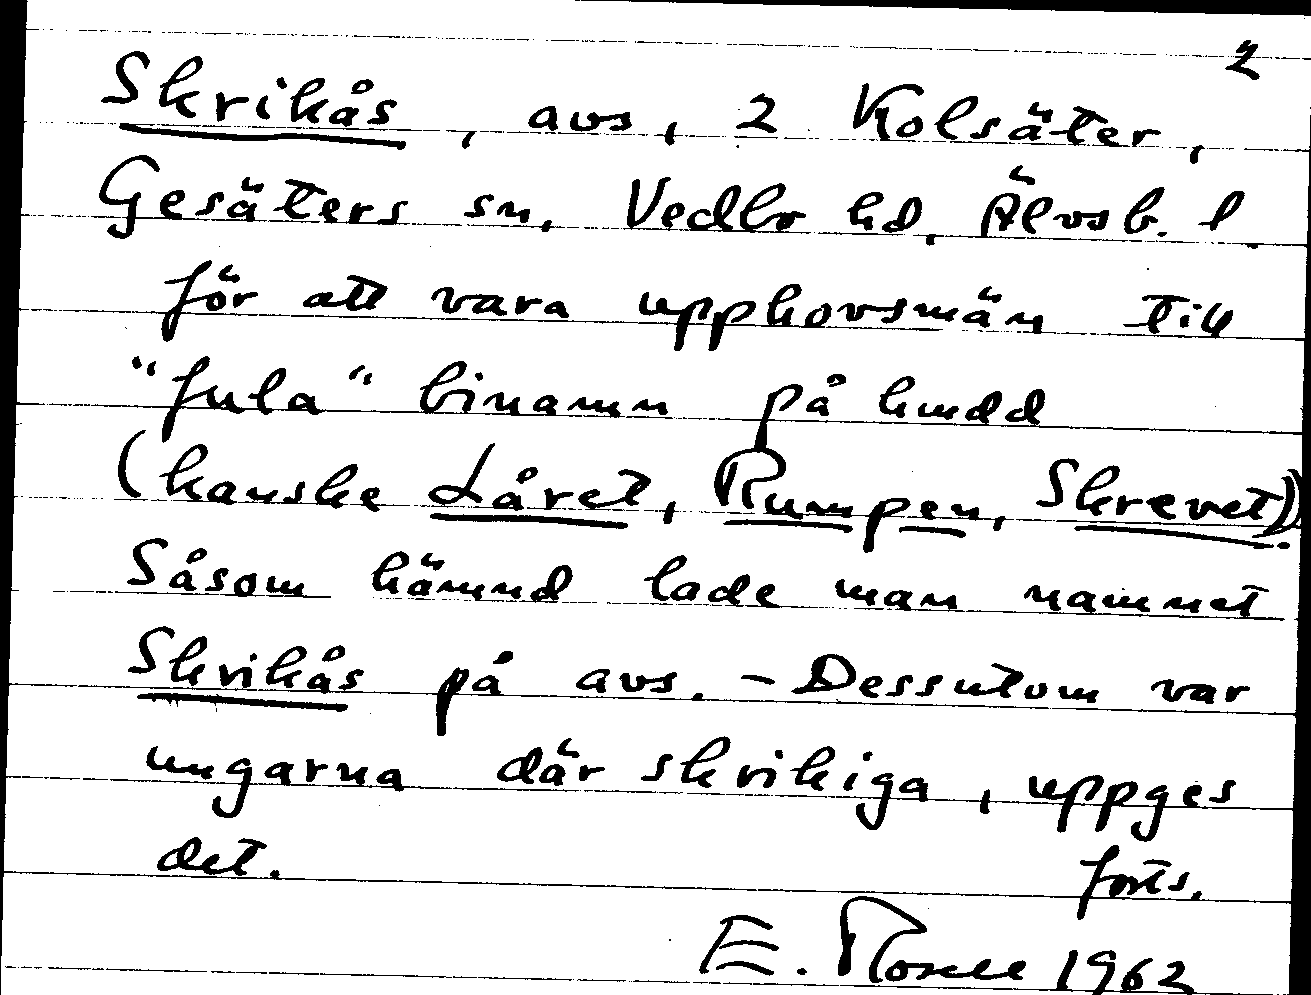 2
Skrikås, avs, 2 Kolsäter,
Gesäters sn, Vedbo hd, Älvsb. l.
för att vara upphovsmän till
"fula" binamn på
(kanske Låret, Rumpen, Skrevet)).
Såsom hämnd lade man namnet
Skrikås på avs. - Dessutom var
ungarna där skrikiga, uppges
det. forts.
E. 1962